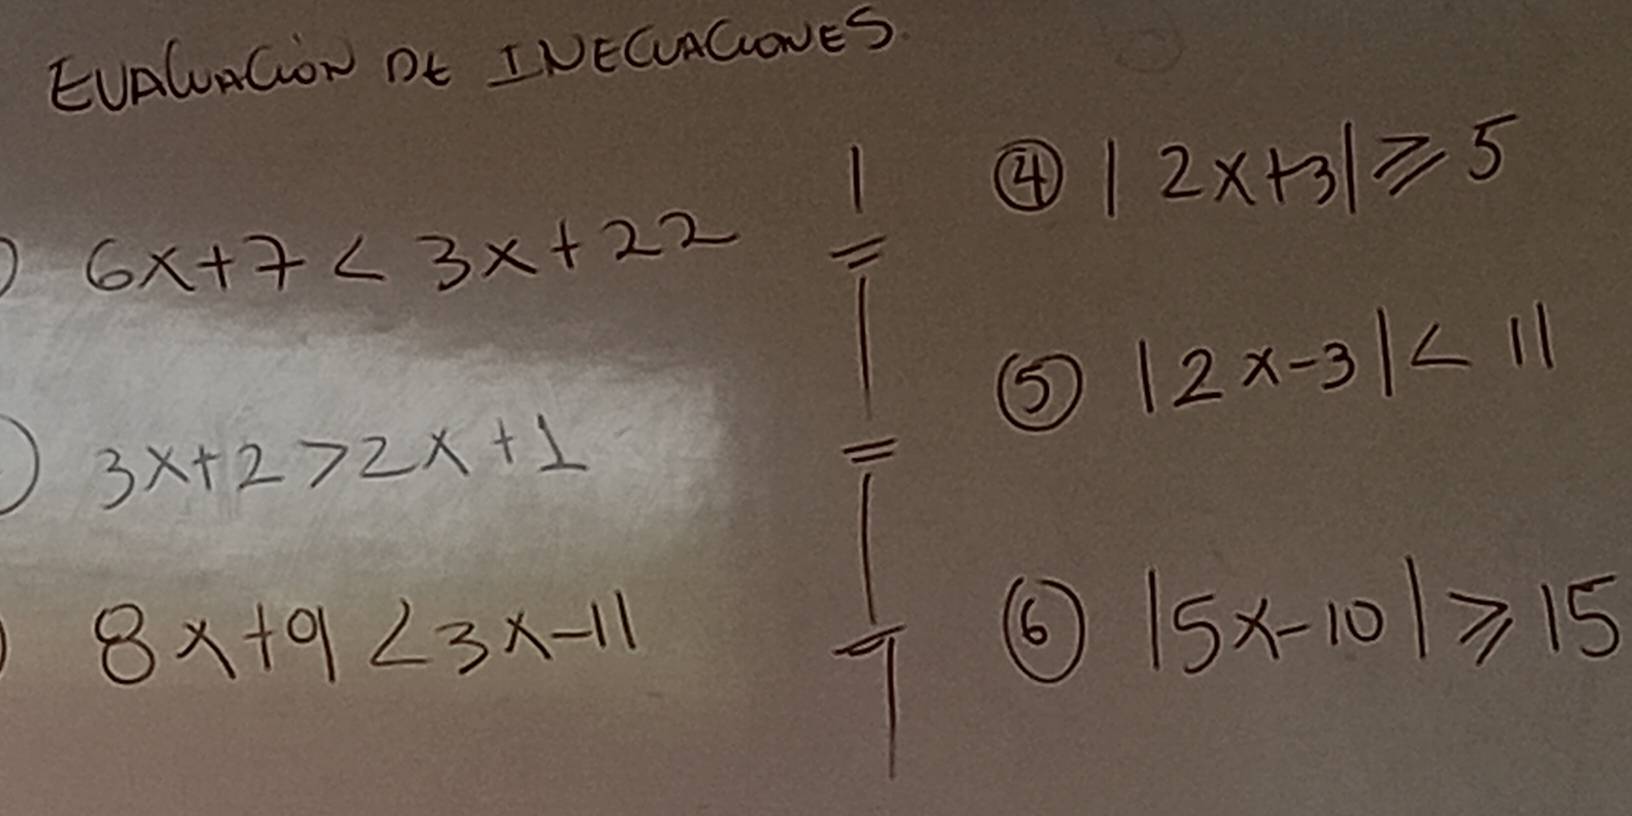 EVALUACIÓN DE INECUACIONES.
) 6x+7 < 3x+22
) 3x+2 > 2x+1
) 8x+9 < 3x-11
④ |2x+3| ⩾ 5
⑤ |2x-3| < 11
⑥ |5x-10| ⩾ 15